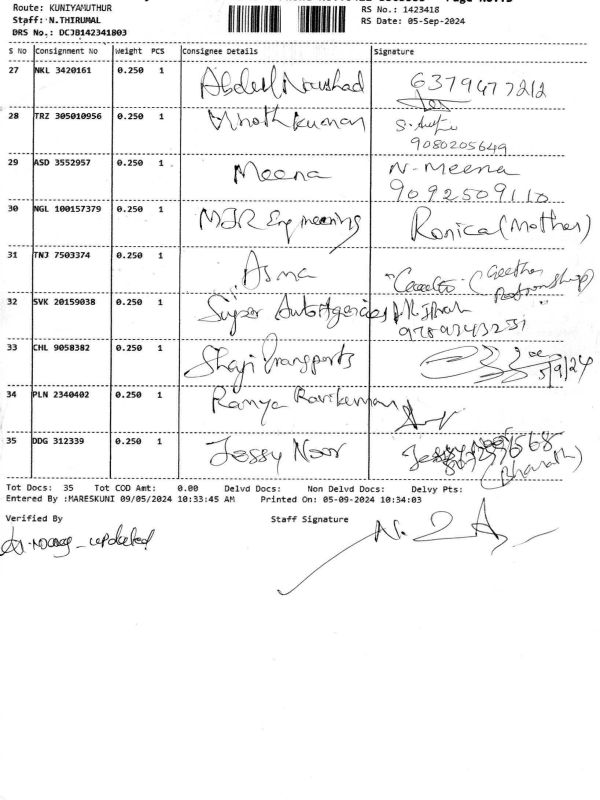 Route: KUNIYAMUTHUR
Staff: N.THIRUMAL
DRS No.: DCJB142341803
RS No.: 1423418
RS Date: 05-Sep-2024
S No Consignment No Weight PCS Consignee Details Signature
27 NKL 3420161 0.250 1 Abdul Naushad 6379477212
28 TRZ 305010956 0.250 1 Vinothkumar
9080205649
29 ASD 3552957 0.250 1 Meena N-Meena
9092509110
30 NGL 100157379 0.250 1 MJR Engineering Ronica (Mother)
31 TNJ 7503374 0.250 1 Asma
32 SVK 20159038 0.250 1 Super AutoAgencies
33 CHL 9058382 0.250 1 Shaji Transports
5/9/24
34 PLN 2340402 0.250 1 Ramya Ravikumar
35 DDG 312339 0.250 1 Jessy Noor
(Bharath)
Tot Docs: 35 Tot COD Amt: 0.00 Delvd Docs: Non Delvd Docs: Delvy Pts:
Entered By :MARESKUNI 09/05/2024 10:33:45 AM Printed On: 05-09-2024 10:34:03
Verified By Staff Signature
updated